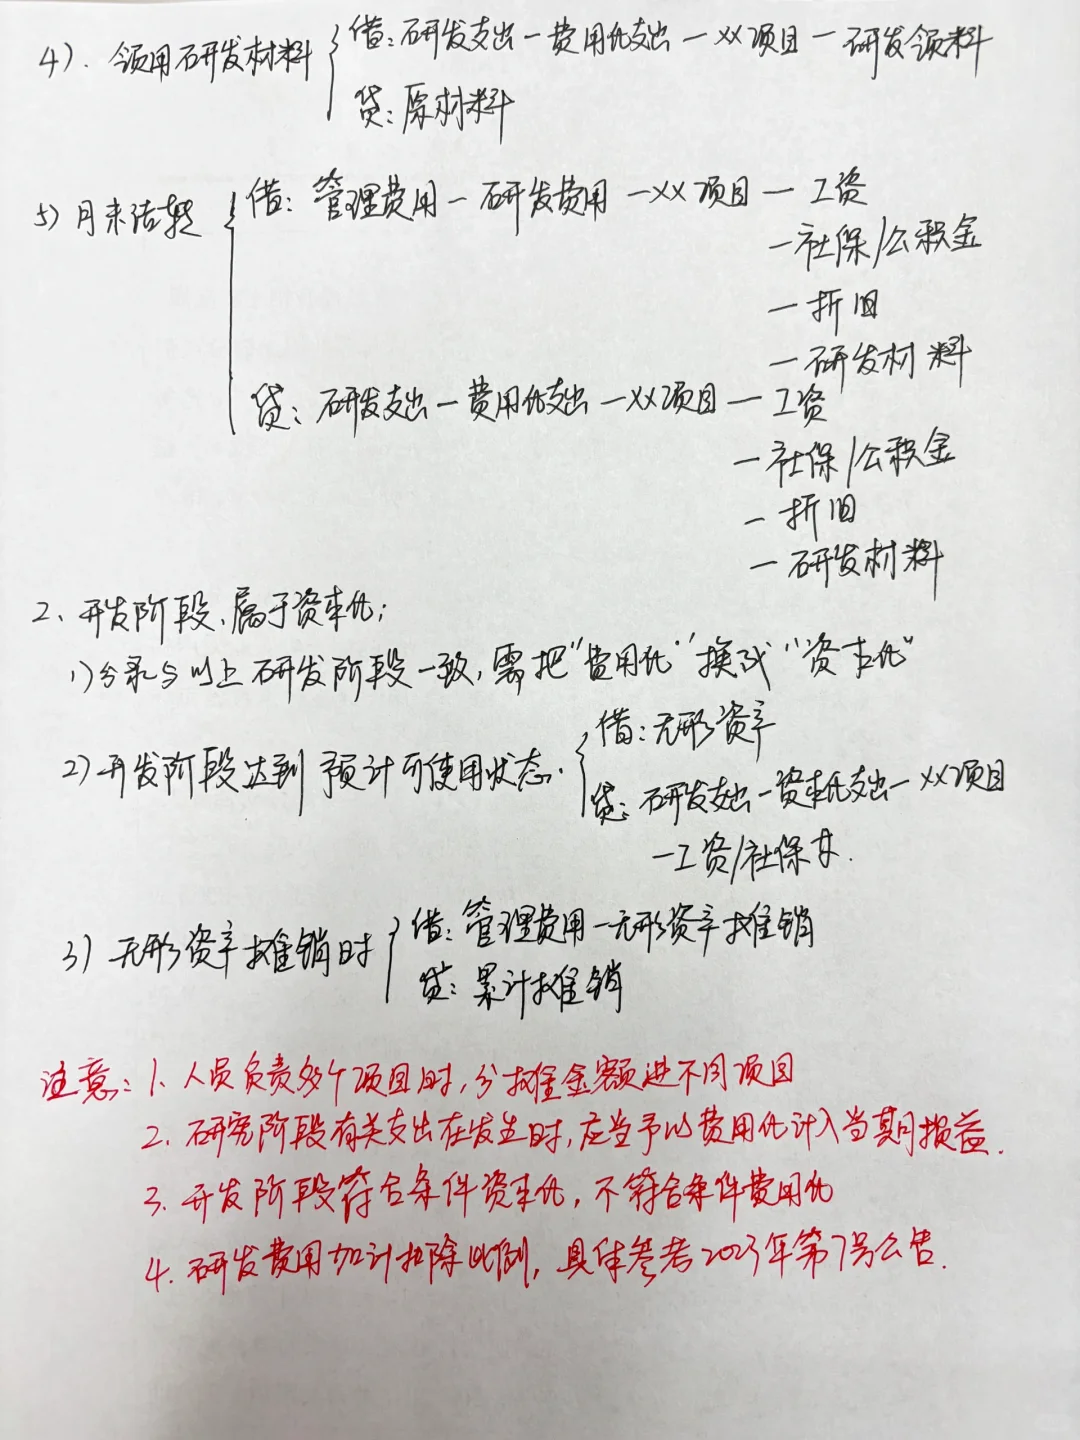 4）. 领用研发材料 借：研发支出一费用化支出一XX项目一研发领料
贷：原材料
5）月末结转 借：管理费用一研发费用一XX项目一工资
一社保/公积金
一折旧
一研发材料
贷：研发支出一费用化支出一XX项目一工资
一社保/公积金
一折旧
一研发材料
2、开发阶段、属于资本化；
1）分录与以上研发阶段一致，需把“费用化”换成“资本化”
2）开发阶段达到预计可使用状态. 借：无形资产
贷：研发支出一资本化支出一XX项目
一工资/社保等.
3）无形资产摊销时 借：管理费用一无形资产摊销
贷：累计摊销
注意：1、人员负责多个项目时，分摊金额进不同项目
2、研究阶段有关支出在发生时，应当予以费用化计入当期损益.
3. 开发阶段符合条件资本化，不符合条件费用化
4. 研发费用加计扣除比例，具体参考2023年第7号公告.